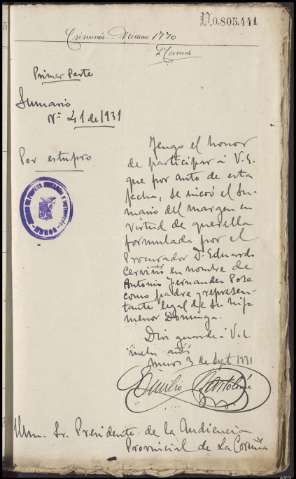 D.0.803.141
Primer Parte
Sumario
Nº 41 de 1931
Por estupro
Tengo el honor
de participar a V.S.
que por auto de esta
fecha, se incoó el Su-
mario del margen en
virtud de querella
formulada por el
Procurador D. Eduardo
Cerviño en nombre de
Antonio Fernandez Pose
como padre y represen-
tante legal de su hija
menor Dominga.
Dios guarde a V.S.
muchos años
Muros 3 de Sept 1931
Emilio
Iltmo. Sr. Presidente de la Audiencia
Provincial de La Coruña